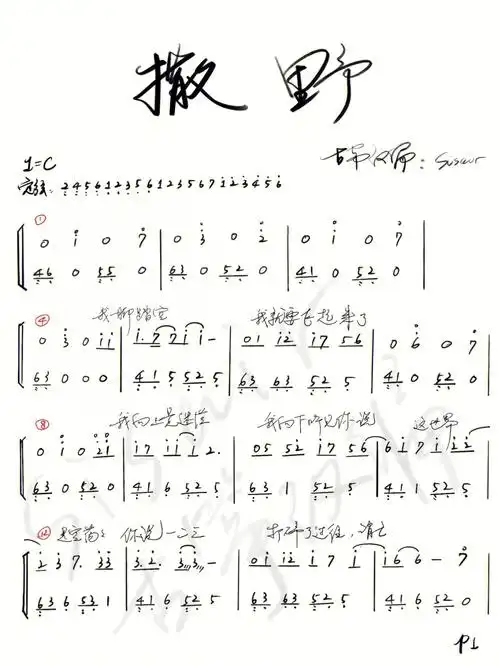 撒野
1=C
定弦: 245612356123567123456
①
0 1 0 7 | 0 3 0 2 | 0 1 0 7
46 0 55 0 | 63 0 52 0 | 41 0 52 0
④ 我一脚踏空 我就要飞起来了
0 3 0 11 | 1. 7 71 1 - | 01 12 17 56 | 0 6 0 7
63 0 0 0 | 41 5 52 5 | 63 0 52 5 | 41 0 0 0
⑧ 我向上是迷茫 我向下听见你说 这世界
0 1 0 21 | 17 11 12. | 05 52 17 12 | 61 71 12
63 0 52 0 | 41 6 52 5 | 63 1 52 5 | 41 1 52 5
⑫ 是空荡荡 你说一二三 打碎了过往, 消亡
2 3 7. 33 | 3. 2. 33 | 01 12 17 1 | 16 6 - 7
63 6 53 1 | 41 6 52 5 | 63 6 52 5 | 41 6 52 0
P1